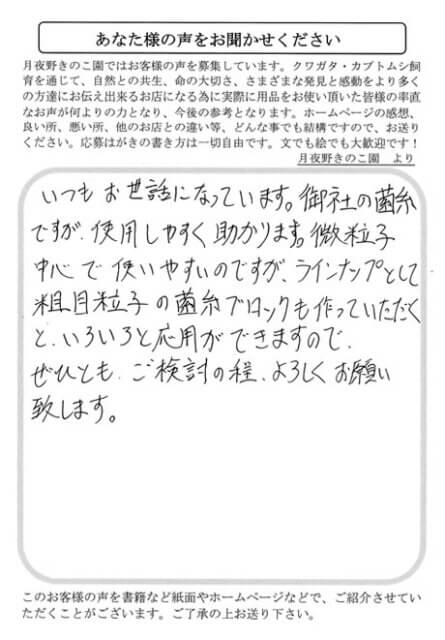 あなた様の声をお聞かせください
月夜野きのこ園ではお客様の声を募集しています。クワガタ・カブトムシ飼
育を通じて、自然との共生、命の大切さ、さまざまな発見と感動をより多く
の方達にお伝え出来るお店になる為に実際に用品をお使い頂いた皆様の率直
なお声が何よりの力となり、今後の参考となります。ホームページの感想、
良い所、悪い所、他のお店との違い等、どんな事でも結構ですので、お送り
ください。応募はがきの書き方は一切自由です。文でも絵でも大歓迎です！
月夜野きのこ園 より
いつもお世話になっています。御社の菌糸
ですが、使用しやすく助かります。微粒子
中心で使いやすいのですが、ラインナップとして
粗目粒子の菌糸ブロックも作っていただく
と、いろいろと応用ができますので、
ぜひとも、ご検討の程、よろしくお願い
致します。
このお客様の声を書籍など紙面やホームページなどで、ご紹介させてい
ただくことがございます。ご了承の上お送り下さい。